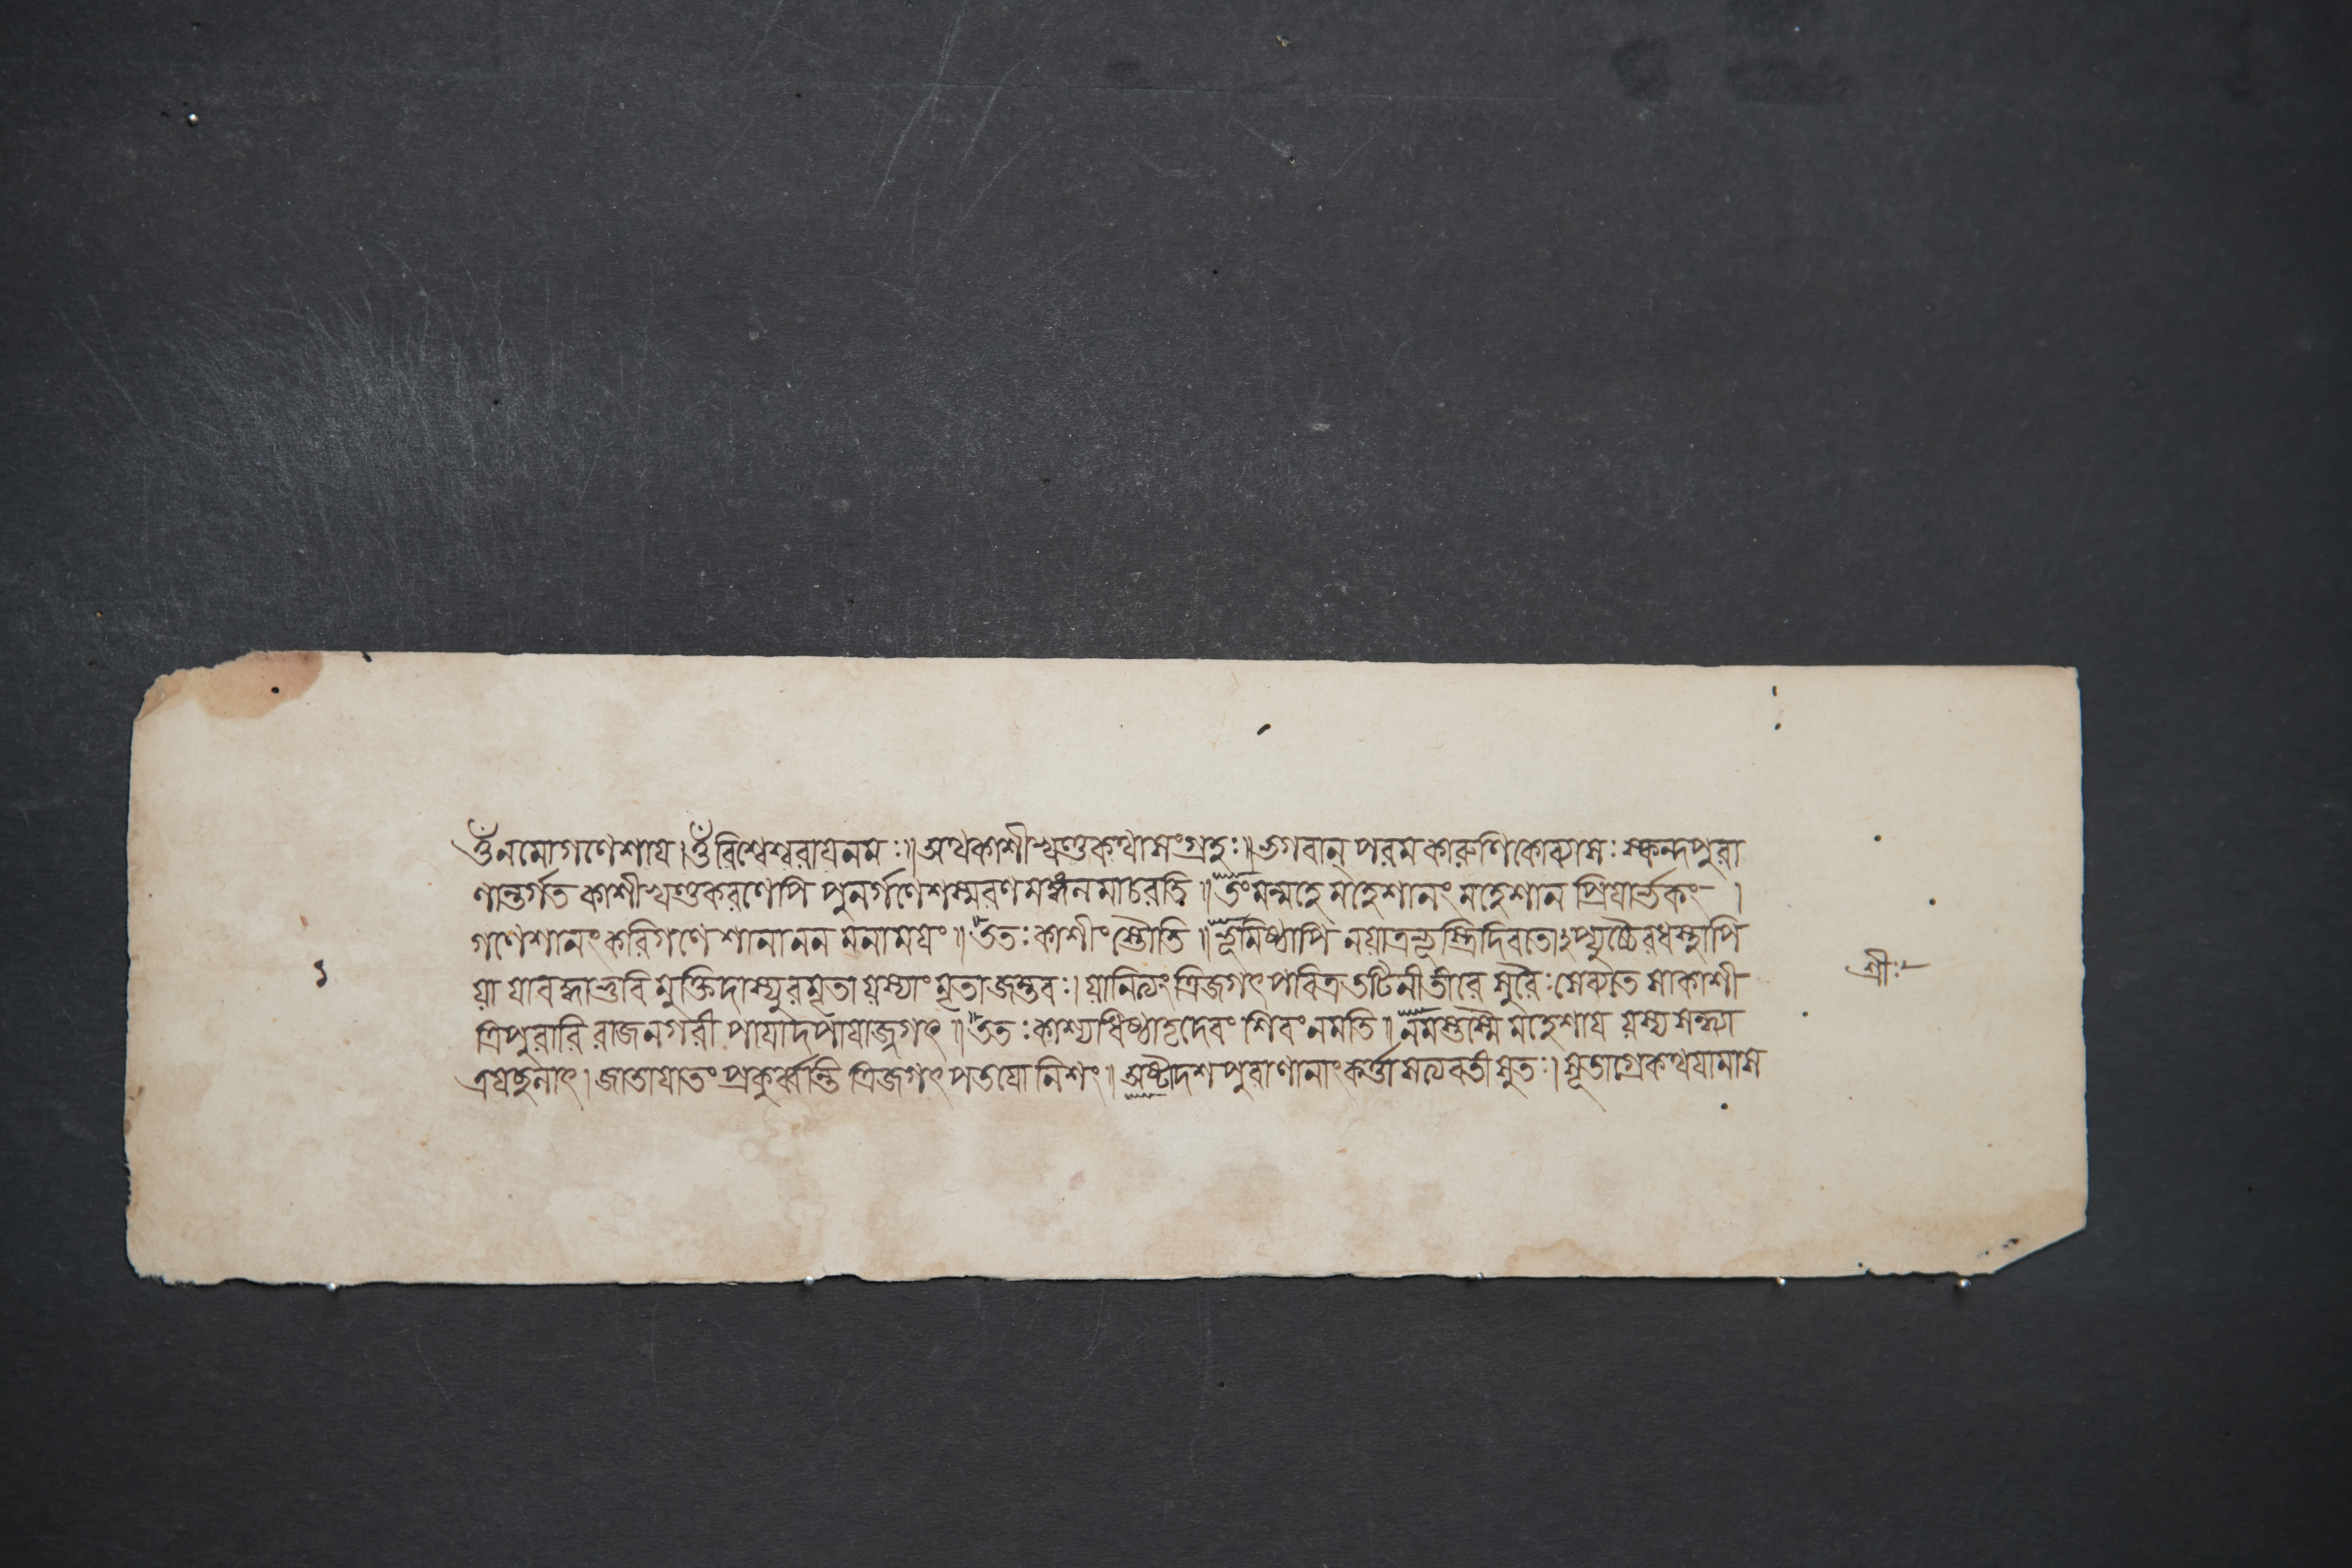 ওঁ নমো গণেশায। ওঁ বিশ্বেশ্বরায নমঃ॥ অথ কাশীখণ্ডকথাসংগ্রহঃ॥ ভগবান্ পরমকারুণিকো ব্যাসঃ স্কন্দপুরা
ণান্তর্গত কাশীখণ্ডকরণেপি পুনর্গণেশস্মরণমঙ্গলমাচরতি॥ তং মন্মহে মহেশানং মহেশানপ্রিযার্ভকং।
গণেশানং করিগণেশানাননমনাময়ং॥ ততঃ কাশীং স্তৌতি॥ ভূমিষ্ঠাপি ন যাত্র ভূস্ত্রিদিবতোঽপ্যুচ্চৈরধস্থাপি
যা যা বদ্ধা ভুবি মুক্তিদা স্যুরমৃতা যস্যাং মৃতা জন্তবঃ। যা নিত্যং ত্রিজগৎপবিত্রতটিনীতীরে সুরৈঃ সেব্যতে সা কাশী
ত্রিপুরারিরাজনগরী পাযাদপাযাজ্জগৎ॥ ততঃ কাশ্যধিষ্ঠাতৃদেবং শিবং নমতি॥ নমস্তস্মৈ মহেশায যস্য সন্ধ্যা
ত্রযচ্ছলাৎ। যাতাযাতং প্রকুর্ব্বন্তি ত্রিজগৎপতযো নিশং॥ অষ্টাদশপুরাণানাং কর্ত্তা সত্যবতীসুতঃ। সূতাগ্রে কথযামাস
১
শ্রীঃ